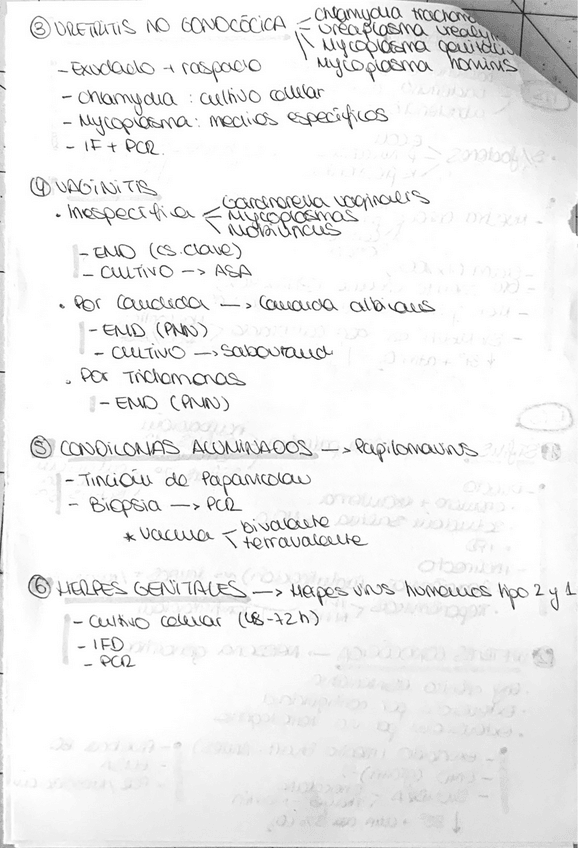 ③ URETRITIS NO GONOCÓCICA
Chlamydia
Ureaplasma
Mycoplasma
Mycoplasma hominis
- Exudado + raspado
- Chlamydia : cultivo celular
- Mycoplasma: medios específicos
- IF + PCR.
④ VAGINITIS
• Inespecífica
Gardnerella vaginalis
Mycoplasmas
Mobiluncus
- EMD (cs. clave)
- CULTIVO → ASA
• Por Candida → Candida albicans
- EMD (PMN)
- CULTIVO → Sabouraud
• Por Trichomonas
- EMD (PMN)
⑤ CONDILOMAS ACUMINADOS → Papilomavirus
- Tinción de Papanicolau
- Biopsia → PCR
* Vacuna
bivalente
tetravalente
⑥ HERPES GENITALES → Herpes virus humanos tipo 2 y 1
- Cultivo celular (48-72h)
- IFD
- PCR